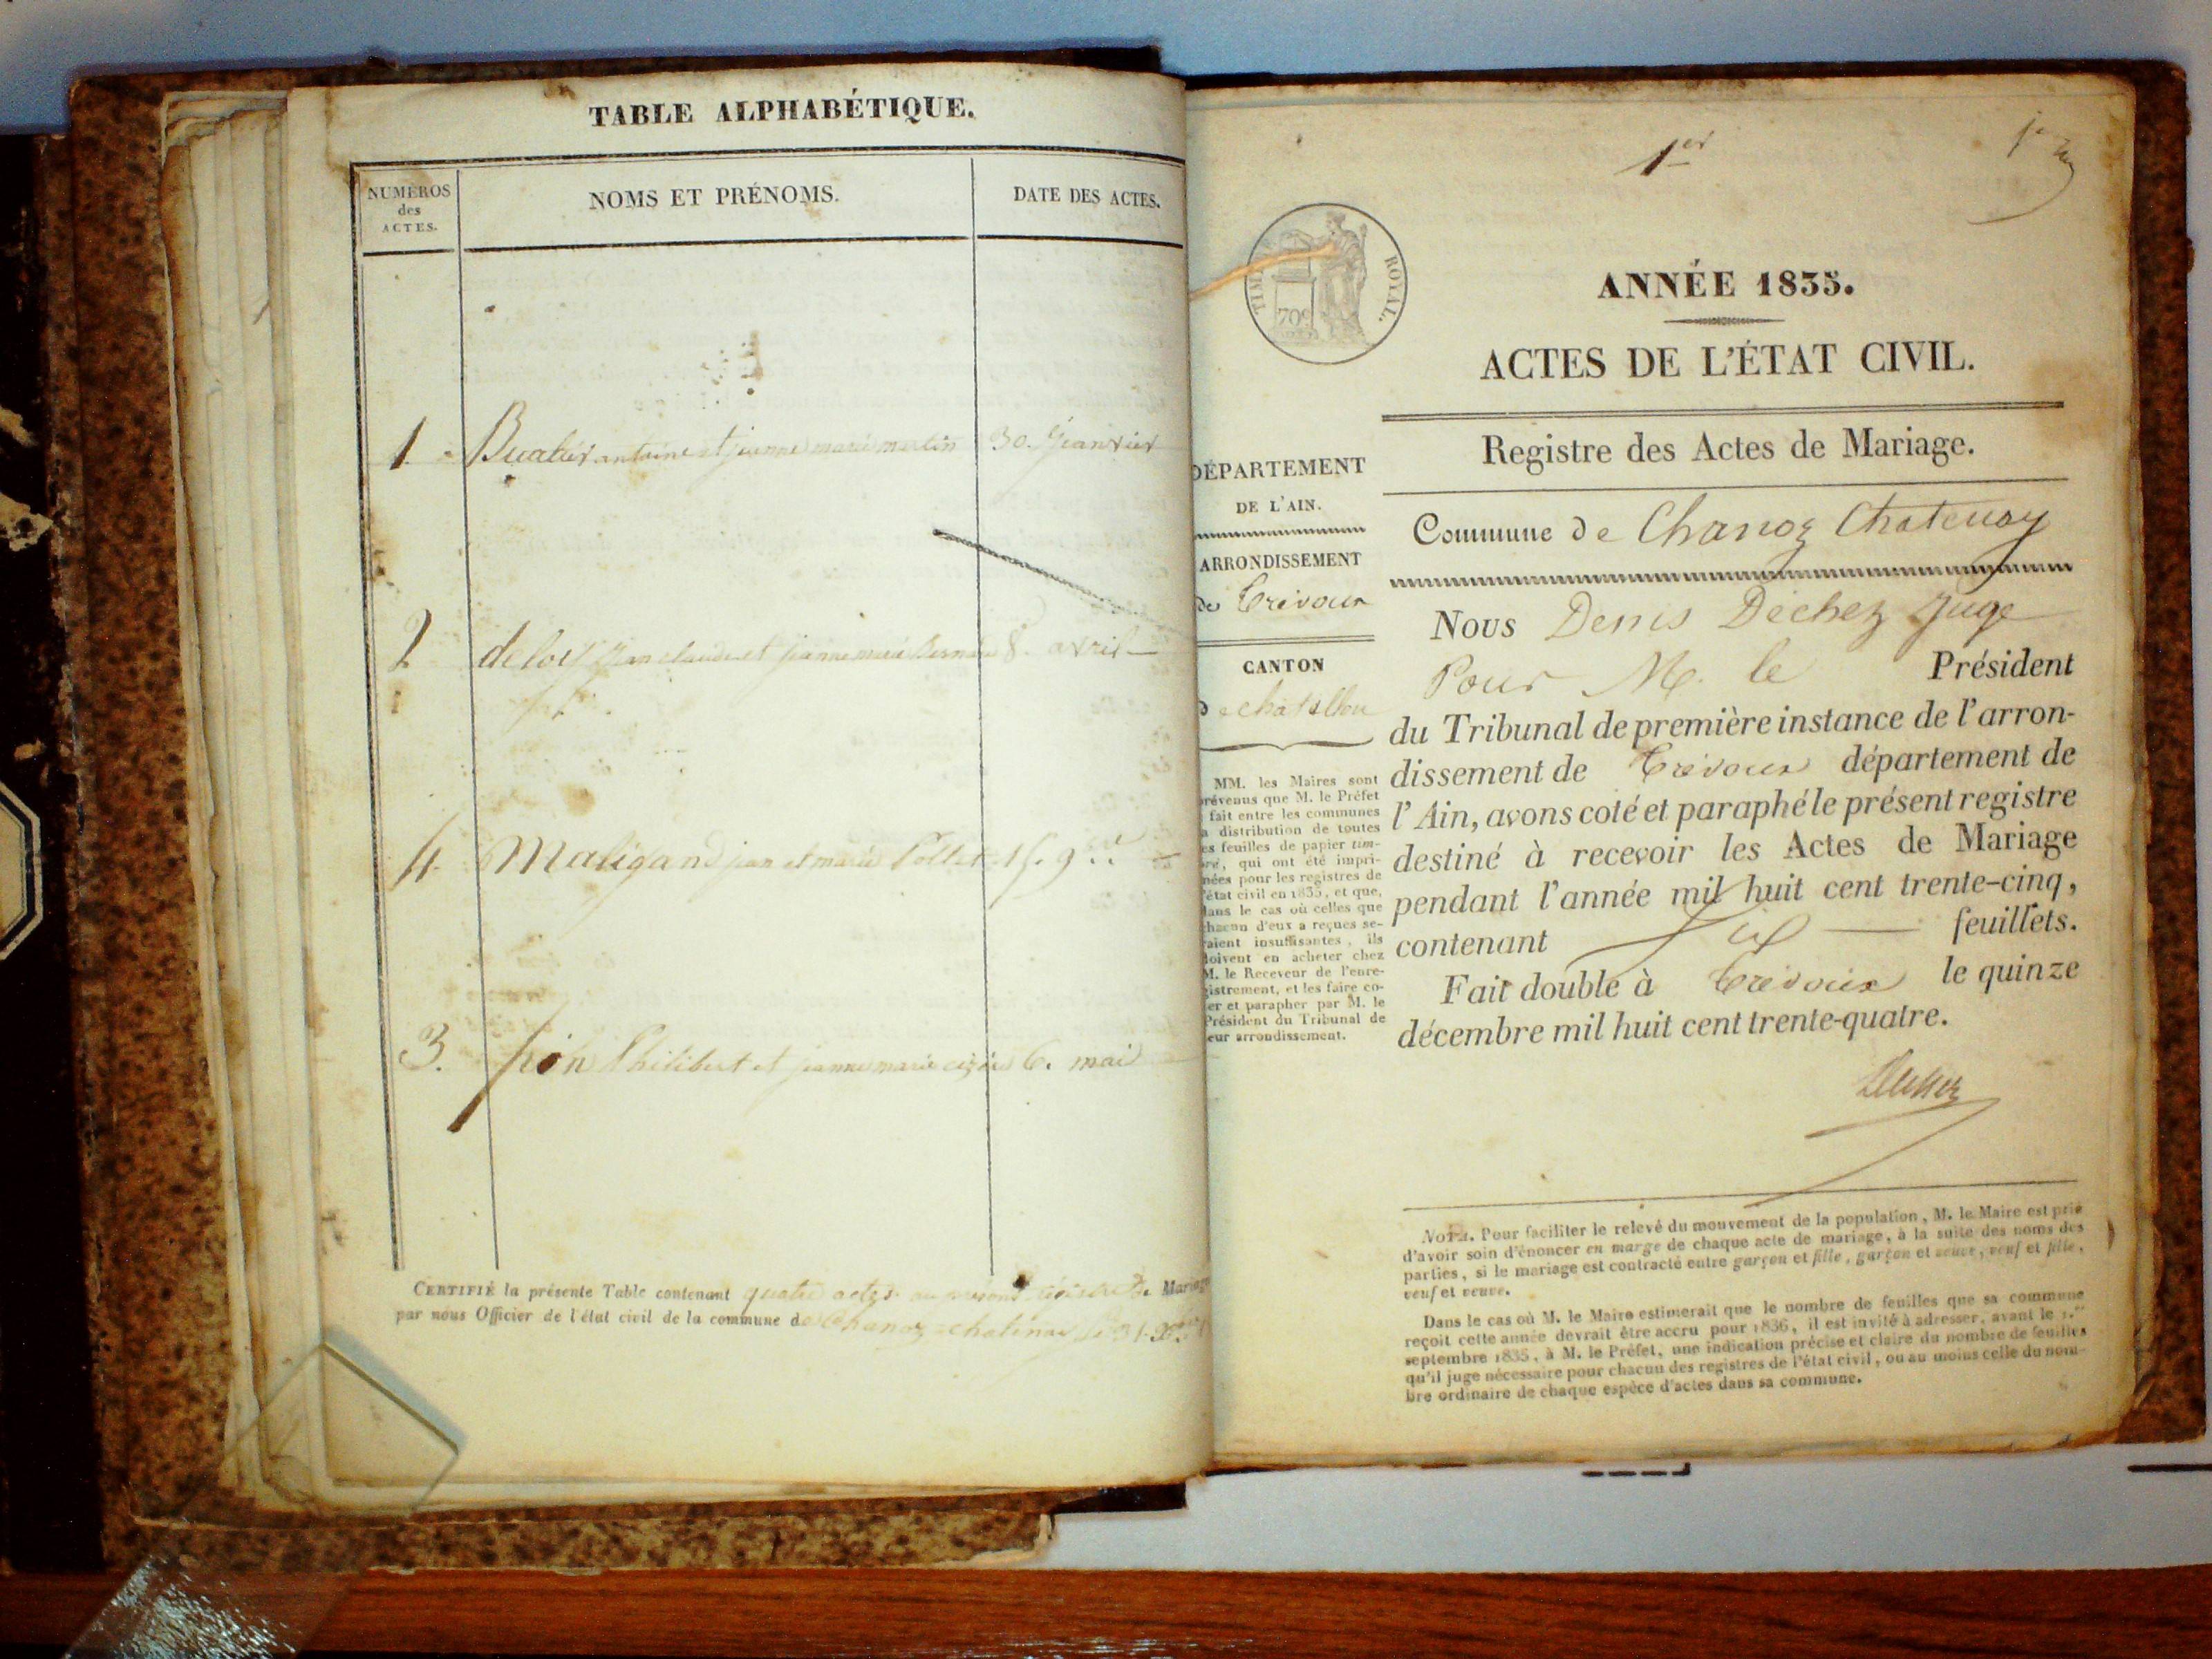 TABLE ALPHABÉTIQUE.
NUMÉROS
des
ACTES.
NOMS ET PRÉNOMS.
DATE DES ACTES.
1. Buatier antoine et jeanne marie martin 30. Janvier
2 deloy jean claude et jeanne marie Bernard 8. avril
4. Maligand jean et marie Pollet 15. 9bre
3. pion Philibert et jeanne marie 6. mai
CERTIFIÉ la présente Table contenant quatre actes au présent registre de Mariage
par nous Officier de l'état civil de la commune de Chanoz-chatenay le 31. Xbre
1er
TIMBRE ROYAL.
70c
ANNÉE 1835.
ACTES DE L'ÉTAT CIVIL.
Registre des Actes de Mariage.
DÉPARTEMENT
DE L'AIN.
ARRONDISSEMENT
de Trévoux
CANTON
de chatillon
MM. les Maires sont
prévenus que M. le Préfet
fait entre les communes
la distribution de toutes
les feuilles de papier tim-
bré, qui ont été impri-
mées pour les registres de
l'état civil en 1835, et que,
dans le cas où celles que
chacun d'eux a reçues se-
raient insuffisantes, ils
doivent en acheter chez
M. le Receveur de l'enre-
gistrement, et les faire co-
ter et parapher par M. le
Président du Tribunal de
leur arrondissement.
Commune de Chanoz Chatenay
Nous Denis Dechez Juge
Pour M. le Président
du Tribunal de première instance de l'arron-
dissement de Trévoux département de
l'Ain, avons coté et paraphé le présent registre
destiné à recevoir les Actes de Mariage
pendant l'année mil huit cent trente-cinq,
contenant Six feuillets.
Fait double à Trévoux le quinze
décembre mil huit cent trente-quatre.
Dechez
NOTA. Pour faciliter le relevé du mouvement de la population, M. le Maire est prié
d'avoir soin d'énoncer en marge de chaque acte de mariage, à la suite des noms des
parties, si le mariage est contracté entre garçon et fille, garçon et veuve, veuf et fille,
veuf et veuve.
Dans le cas où M. le Maire estimerait que le nombre de feuilles que sa commune
reçoit cette année devrait être accru pour 1836, il est invité à adresser, avant le 1.er
septembre 1835, à M. le Préfet, une indication précise et claire du nombre de feuilles
qu'il juge nécessaire pour chacun des registres de l'état civil, ou au moins celle du nom-
bre ordinaire de chaque espèce d'actes dans sa commune.